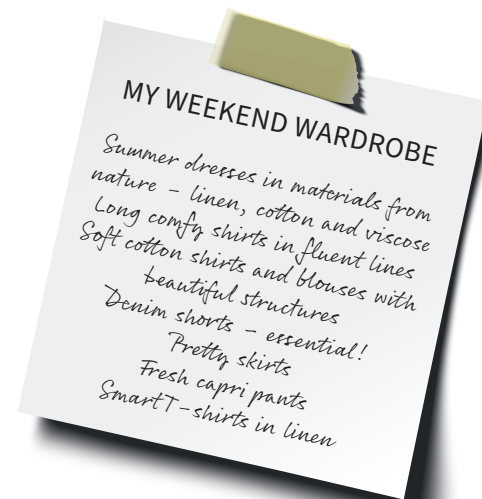 MY WEEKEND WARDROBE
Summer dresses in materials from
nature - linen, cotton and viscose
Long comfy shirts in fluent lines
Soft cotton shirts and blouses with
beautiful structures
Denim shorts - essential!
Pretty skirts
Fresh capri pants
Smart T-shirts in linen